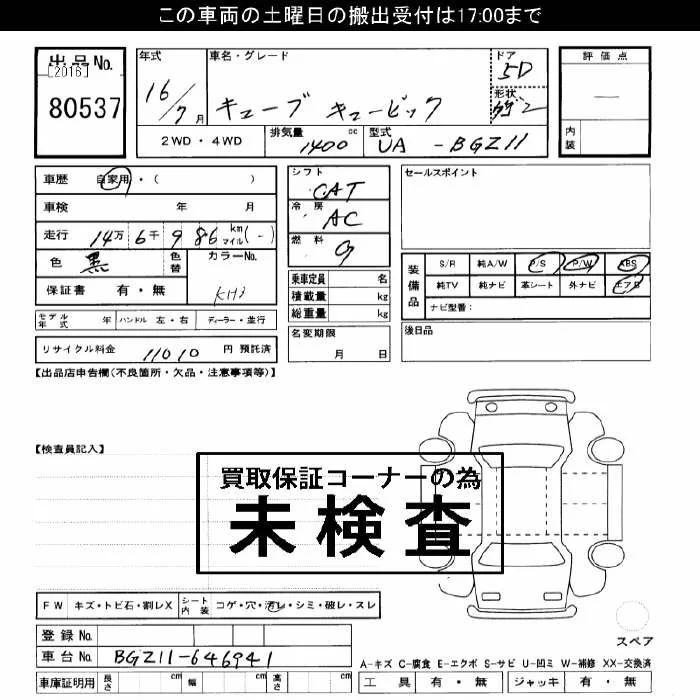 この車両の土曜日の搬出受付は17:00まで
出品No. [2016] 80537
年式 16/7月
車名・グレード キューブ キュービック
ドア 5D
形状
評価点 —
内装
2WD・4WD
排気量 1400 cc
型式 UA - BGZ11
車歴 自家用・( )
車検 年 月
走行 14万 6千 986 km マイル (-)
色 黒 色替 カラーNo. KH3
保証書 有・無
モデル年式 年 ハンドル 左・右 ディーラー・並行
リサイクル料金 11010 円 預託済
シフト CAT
冷房 AC
燃料 G
乗車定員 名
積載量 kg
総重量 kg
名変期限 月 日
セールスポイント
装備品 S/R 純A/W P/S P/W ABS
純TV 純ナビ 革シート 外ナビ エアB
ナビ型番:
後日品
【出品店申告欄(不良箇所・欠品・注意事項等)】
【検査員記入】
買取保証コーナーの為
未検査
FW キズ・トビ石・割レX シート内装 コゲ・穴・汚レ・シミ・破レ・スレ
登録No.
車台No. BGZ11-646941
車庫証明用 長さ cm 幅 cm 高さ cm
スペア
A-キズ C-腐食 E-エクボ S-サビ U-凹ミ W-補修 XX-交換済
工具 有・無 ジャッキ 有・無